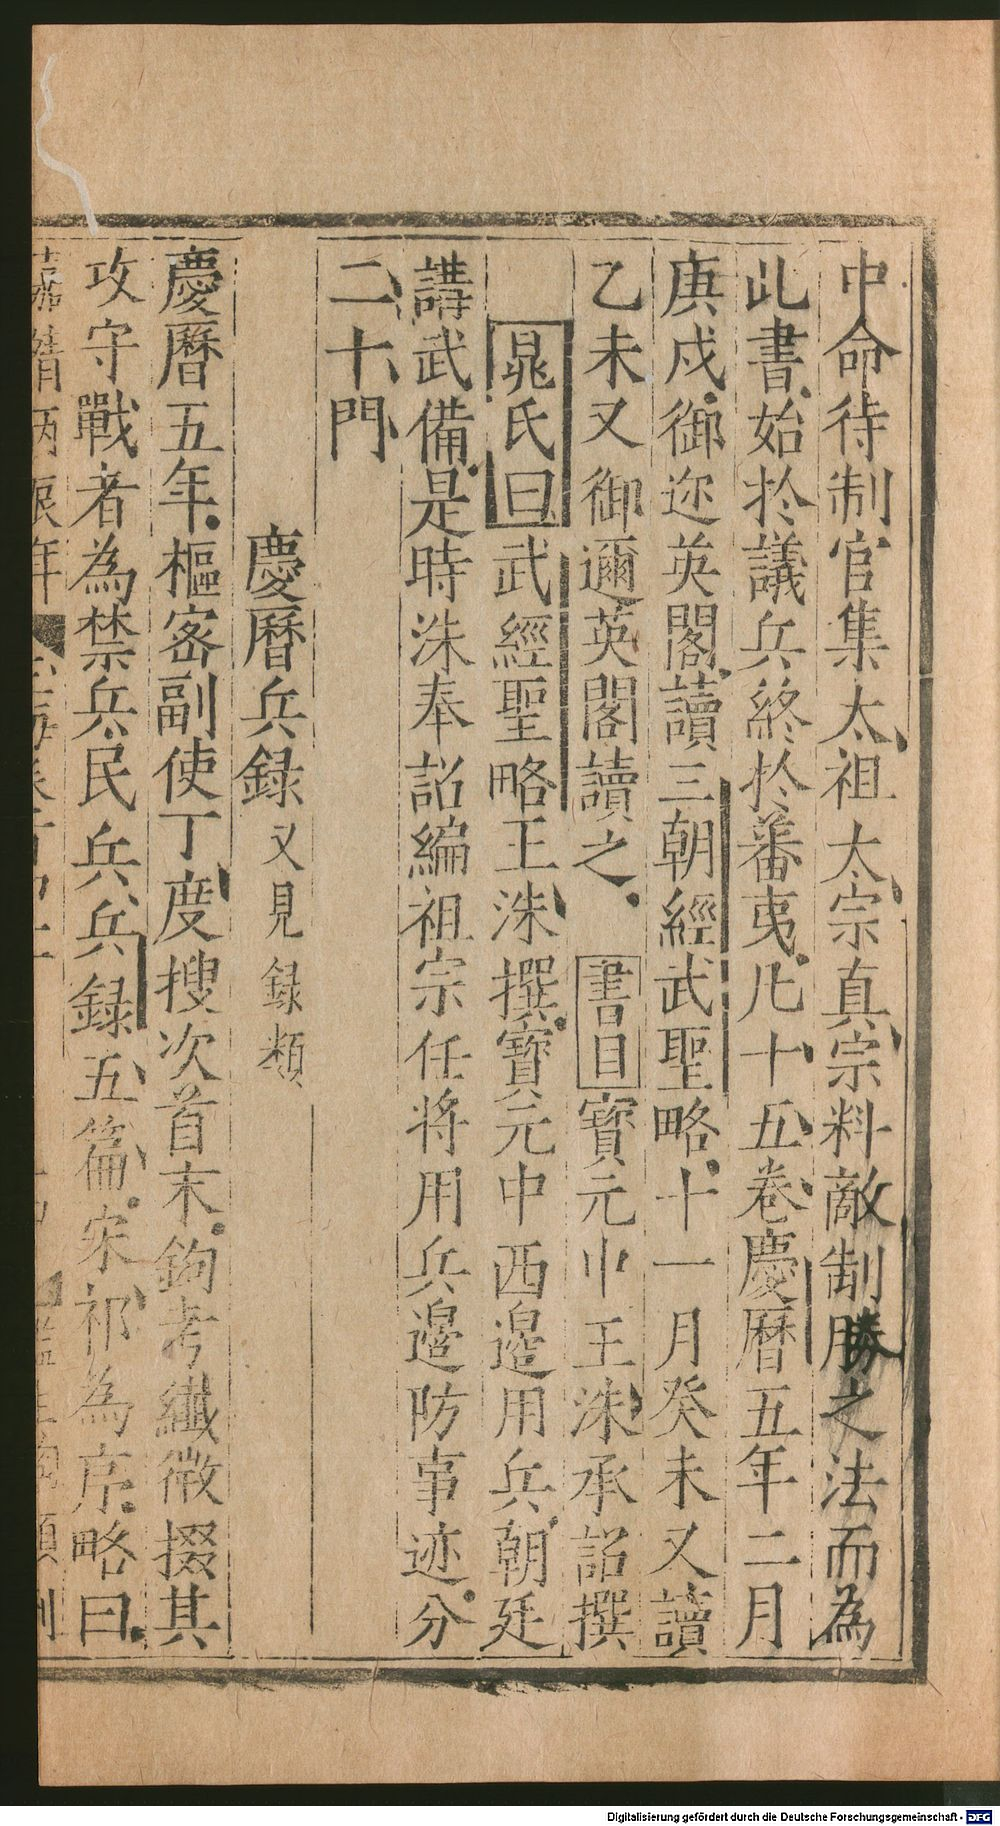 中命待制官集太祖太宗真宗料敵制勝之法而為
此書始於議兵終於蕃夷凡十五卷慶曆五年二月
庚戍御迩英閣讀三朝經武聖略十一月癸未又讀
乙未又御邇英閣讀之 書目寳元中王洙承詔撰
晁氏曰武經聖略王洙撰寳元中西邉用兵朝廷
講武備是時洙奉詔編祖宗任将用兵邉防事迹分
二十門
慶曆兵録又見録類
慶曆五年樞宻副使丁度搜次首末鉤考纖微掇其
攻守戰者為禁兵民兵兵録五篇宋祁為序略曰
嘉靖丙辰年
Digitalisierung gefördert durch die Deutsche Forschungsgemeinschaft - DFG